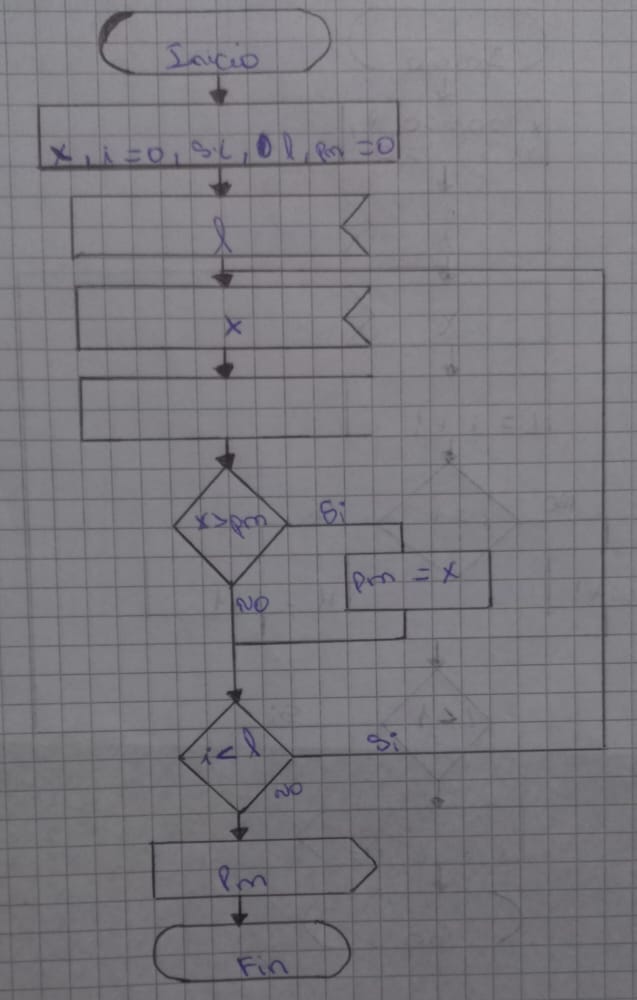 Inicio
x, i=0, Si, l, pm=0
l
x
x>pm
Si
pm = x
NO
i< l
Si
NO
Pm
Fin